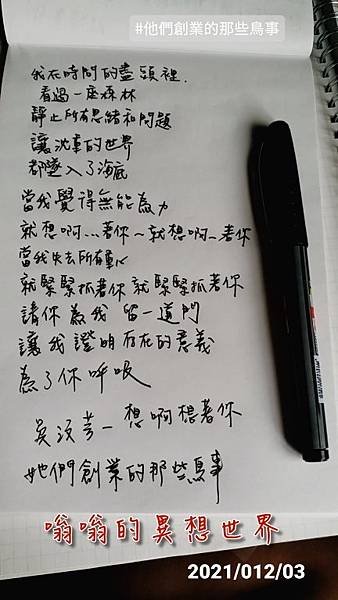 #他們創業的那些鳥事
我在時間的盡頭裡.
看過一座森林
靜止所有思緒和問題
讓沈重的世界
都墜入了海底
當我覺得無能為力
就想啊...著你~就想啊~著你
當我失去所有重心
就緊緊抓著你就緊緊抓著你
請你為我留一道門
讓我證明存在的意義
為了你呼吸
吳汶芳-想啊想著你
她們創業的那些鳥事
嗡嗡的異想世界
2021/012/03